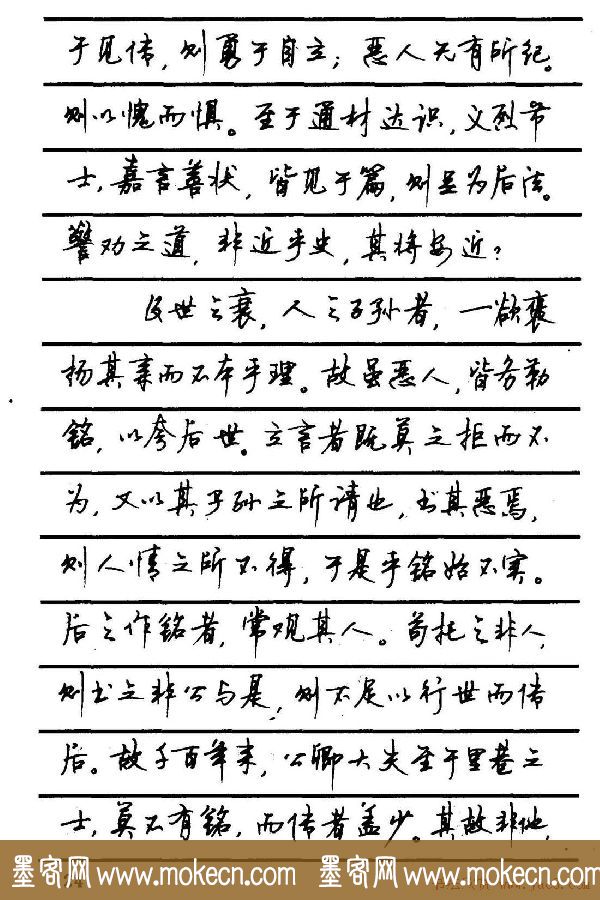 于见传，则勇于自立；恶人无有所纪。
则以愧而惧。至于通材达识，义烈节
士，嘉言善状，皆见于篇，则足为后法。
警劝之道，非近乎史，其将安近？
及世之衰，人之子孙者，一欲褒
扬其亲而不本乎理。故虽恶人，皆务勒
铭，以夸后世。立言者既莫之拒而不
为，又以其子孙之所请也，书其恶焉，
则人情之所不得，于是乎铭始不实。
后之作铭者，常观其人。苟托之非人，
则书之非公与是，则不足以行世而传
后。故千百年来，公卿大夫至于里巷之
士，莫不有铭，而传者盖少。其故非他，
墨客网 www.mokecn.com 墨客网 www.mokecn.com